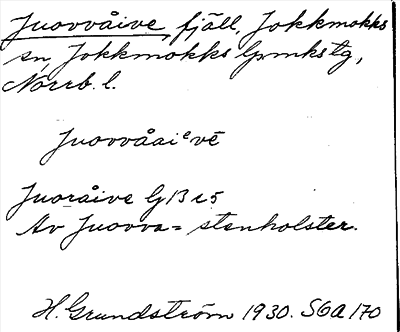 Juovvåive, fjäll, Jokkmokks
sn, Jokkmokks lpmkstg,
Norrb. l.
Juovvåaiᵉvē
Juoråive G13 r5
Av Juovva= stenholster.
H. Grundström 1930. SOA 170